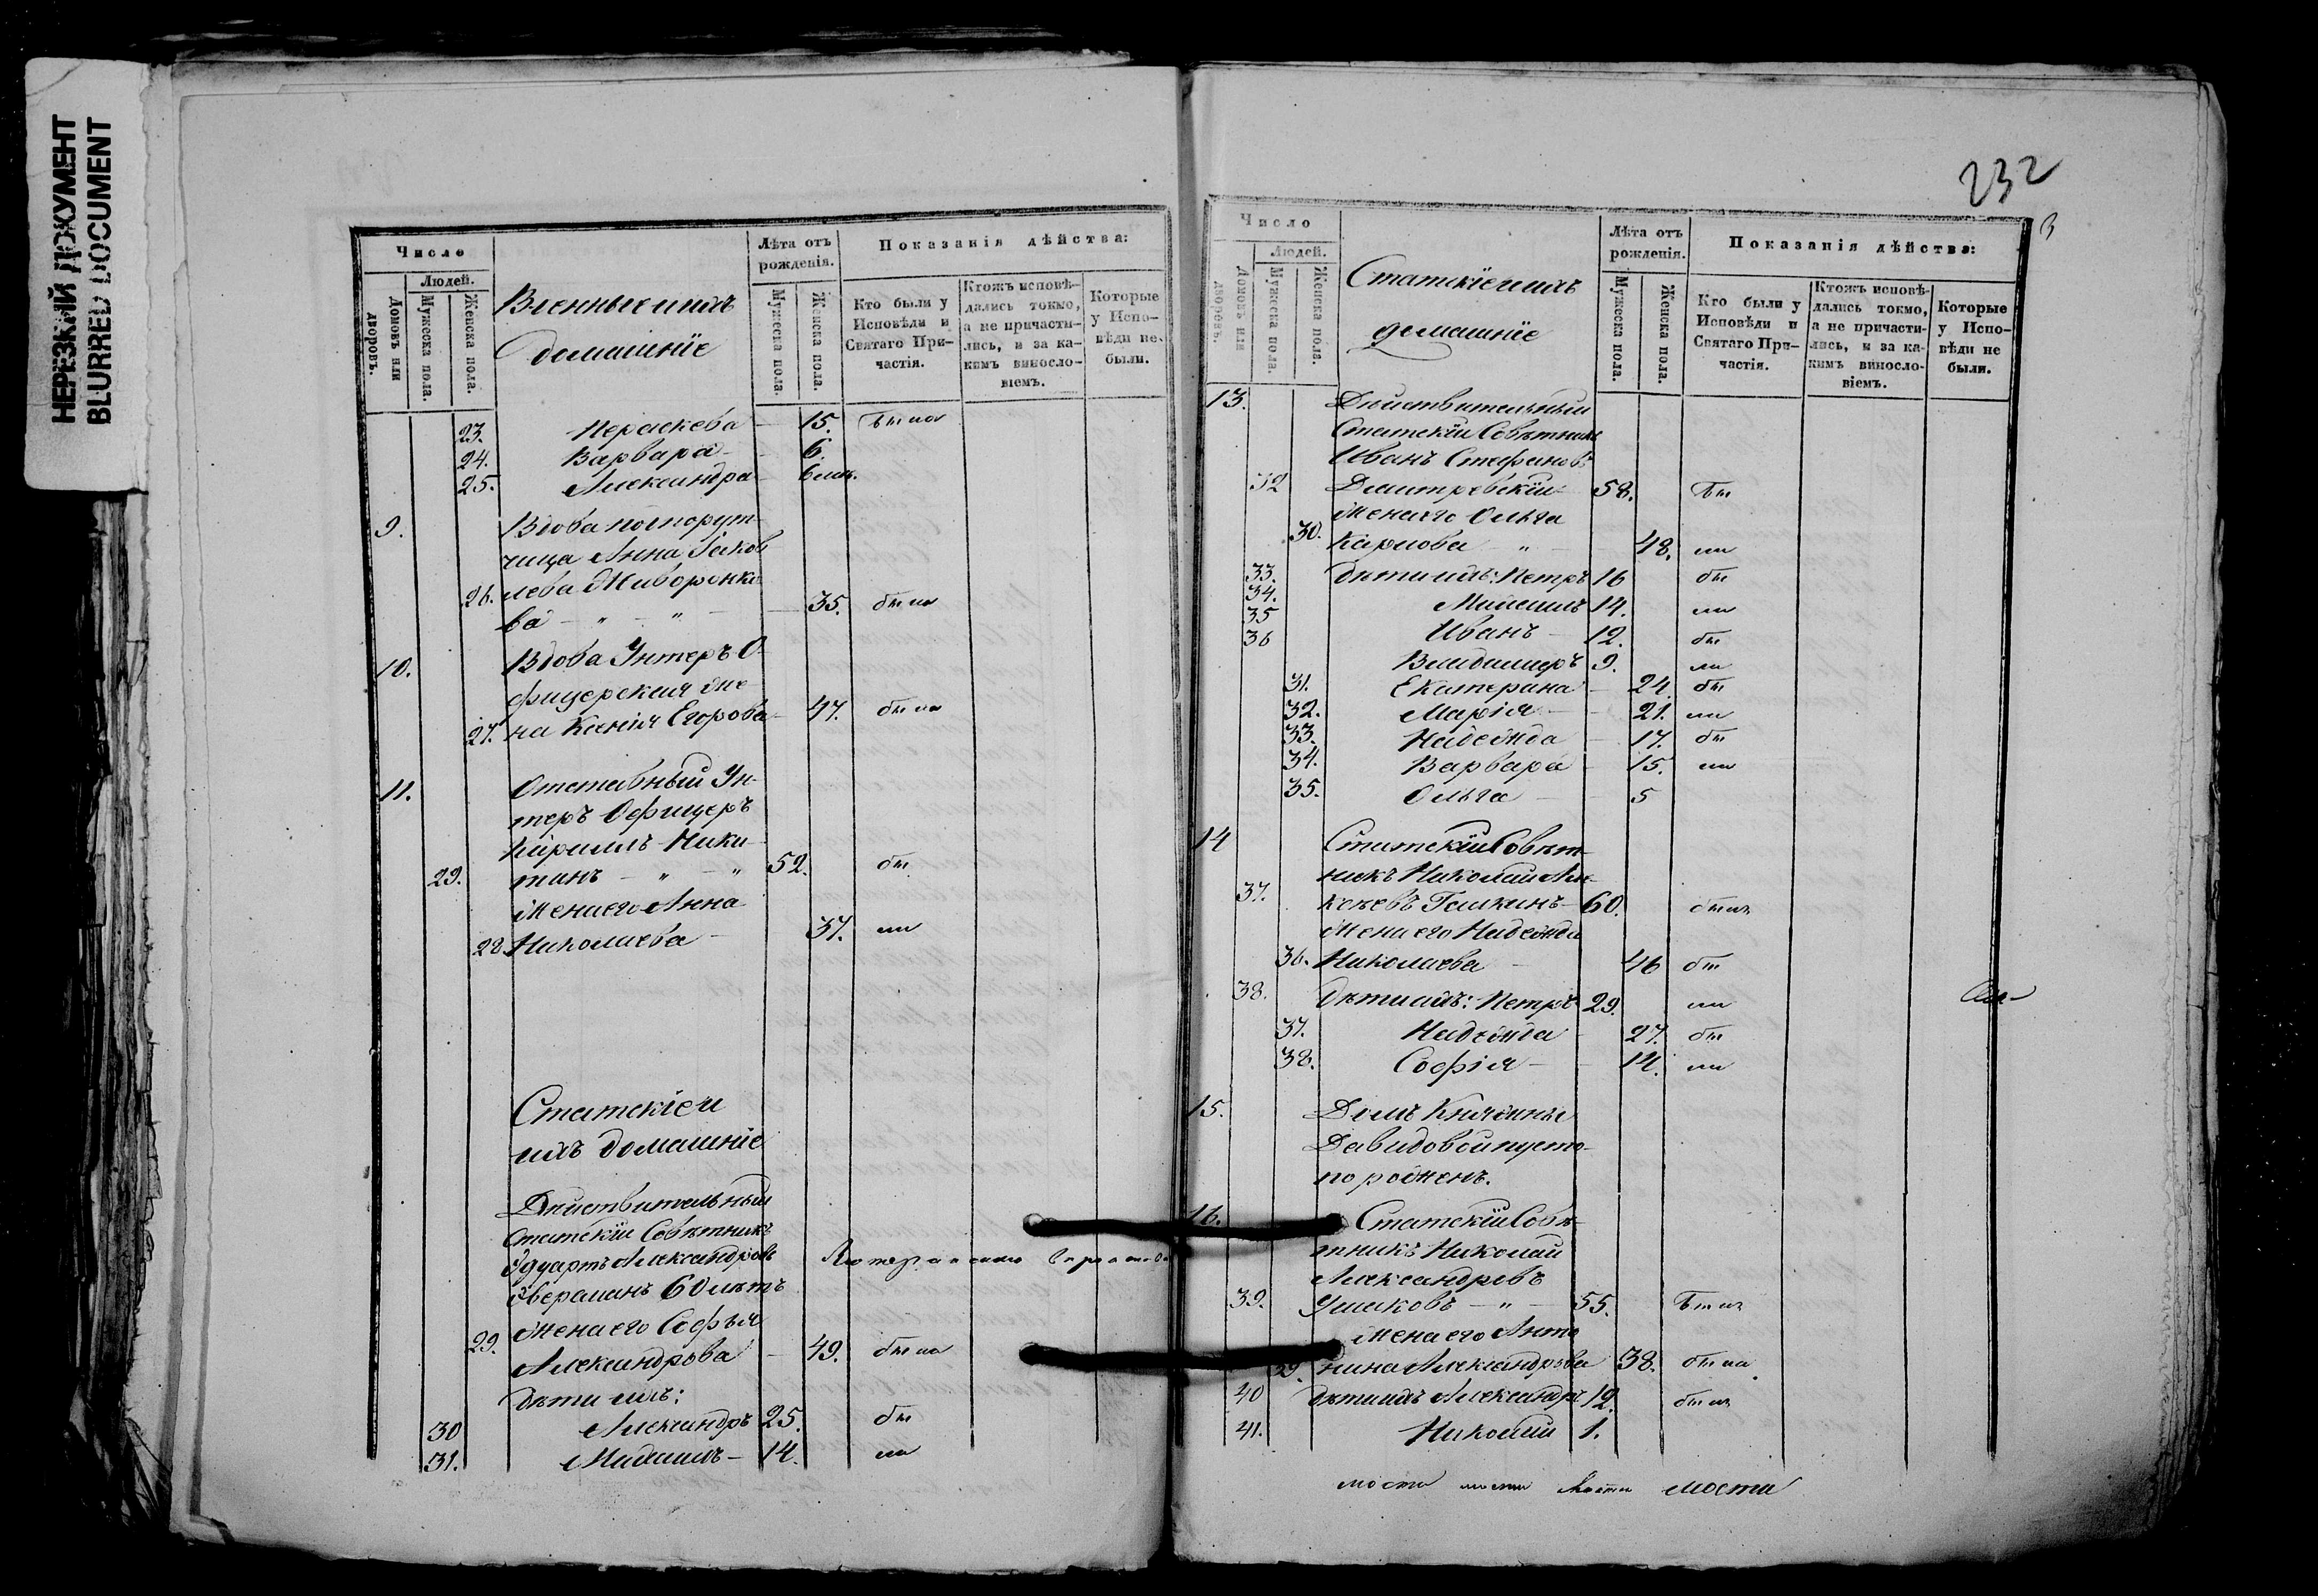 НЕРЕЗКИЙ ДОКУМЕНТ
BLURRED DOCUMENT
Число
Людей.
Домовъ или дворовъ.
Мужеска пола.
Женска пола.
Военные и ихъ
домашнїе
Лѣта отъ рожденія.
Мужеска пола.
Женска пола.
Показанія дѣйства:
Кто были у Исповѣди и Святаго Причастія.
Ктожъ исповѣ-
дались токмо,
а не причасти-
лись, и за ка-
кимъ винос­ло-
віемъ.
Которые
у Испо-
вѣди не
были.
23. Параскева - 15. была
24. Варвара - 6.
25. Александра - 6 мѣс.
9. Вдова поспорут-
чица Анна
26. лева Жаворонко
ва - " - " - 35. была
10. Вдова Унтеръ О-
фицерская же-
27. на Ксенія Егорова - 47. была
11. Отставный Ун-
теръ Офицеръ
Кирилъ Ники-
29. тинъ - " - " 52. бы
Жена его Анна
28. Николаева - 37. ли
Статскїе и
ихъ домашнїе
Дѣйствительный
Статскїй Совѣтникъ
Эдуартъ Александровъ
60 лѣтъ
Жена его Софья
29. Александрова - 49. была
Дѣти ихъ:
30 Александръ 25. бы
31. Михаилъ - 14. ли
232
3
Число
Людей.
Домовъ или дворовъ.
Мужеска пола.
Женска пола.
Статскїе и ихъ
домашнїе
Лѣта отъ рожденія.
Мужеска пола.
Женска пола.
Показанія дѣйства:
Кто были у
Исповѣди и
Святаго При-
частія.
Ктожъ исповѣ-
дались токмо,
а не причасти-
лись, и за ка-
кимъ винос­ло-
віемъ.
Которые
у Испо-
вѣди не
были.
13. Дѣйствительный
Статскїй Совѣтникъ
Иванъ Стефановъ
32 Дмитревскїй 58. бы
Жена его Ольга
30. Карлова - " - 48. ли
33. Дѣти ихъ: Петръ 16 бы
34. Михаилъ 14. ли
35 Иванъ - 12. бы
36 Владимиръ 9. ли
31. Екатерина - 24. бы
32. Марія - 21. ли
33. Надежда - 17. бы
34. Варвара - 15. ли
35. Ольга - 5
14 Статскїй Совѣт-
никъ Николай Але-
37. ксѣевъ Галкинъ - 60. былъ
Жена его Надежда
36. Николаева - 46 бы
38. Дѣти ихъ: Петръ 29. ли
37. Надежда - 27. бы
38. Софія - 14. ли
15. Домъ Княжны
Давидовой пусто-
порожжень.
16. Статскїй Совѣ-
тникъ Николай
Александровъ
39. Ушаковъ - " - 55. былъ
Жена его Анто
39. нина Александрова 38. была
40 Дѣти ихъ Александръ 12. былъ
41. Николай 1.
мости мости мости моста